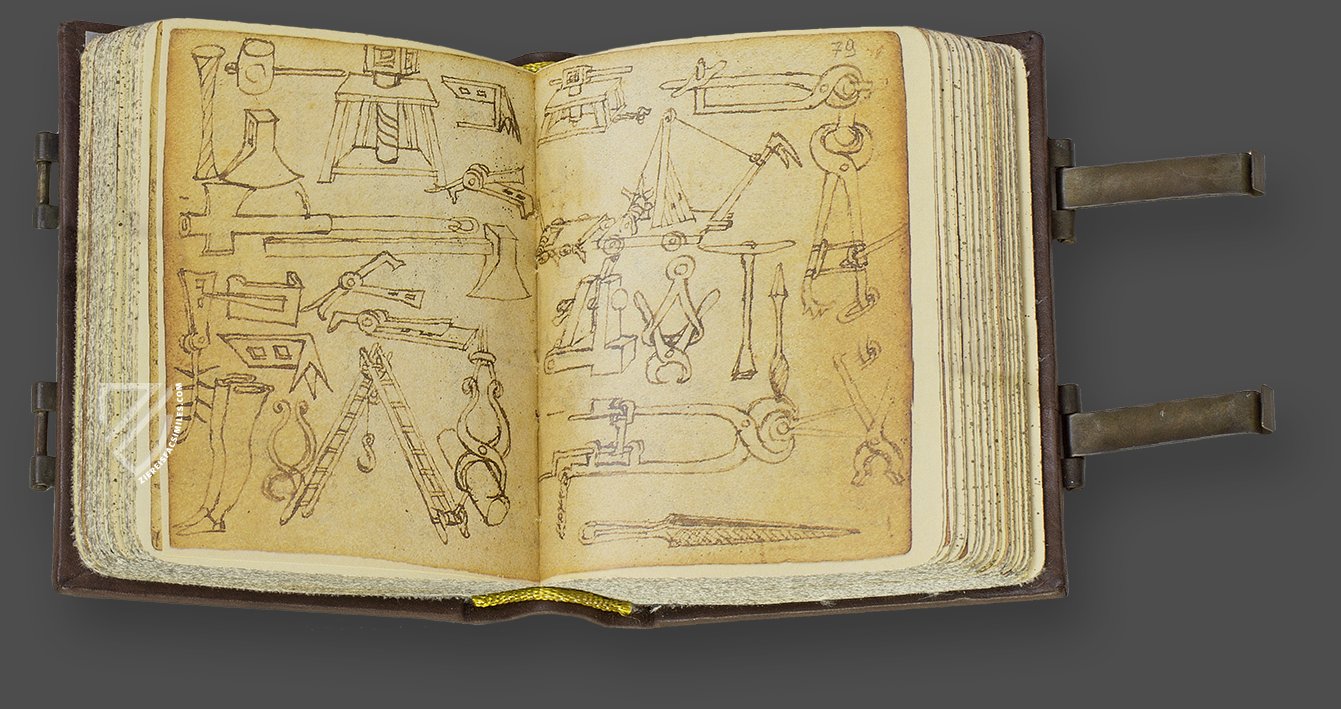 79
ZIEREIS FACSIMILES.COM